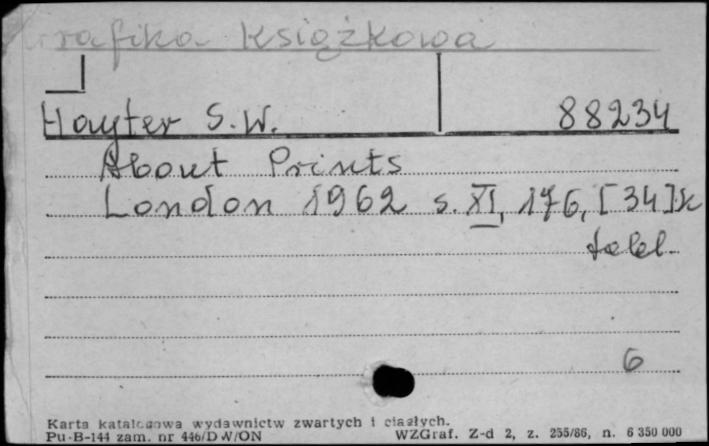 Grafika Książkowa
Hayter S.W. 88234
About Prints
London 1962 s. XI, 176, [34] k
tabl.
6
Karta katalogowa wydawnictw zwartych i ciągłych.
Pu-B-144 zam. nr 446/DW/ON WZGraf. Z-d 2, z. 255/86, n. 6 350 000